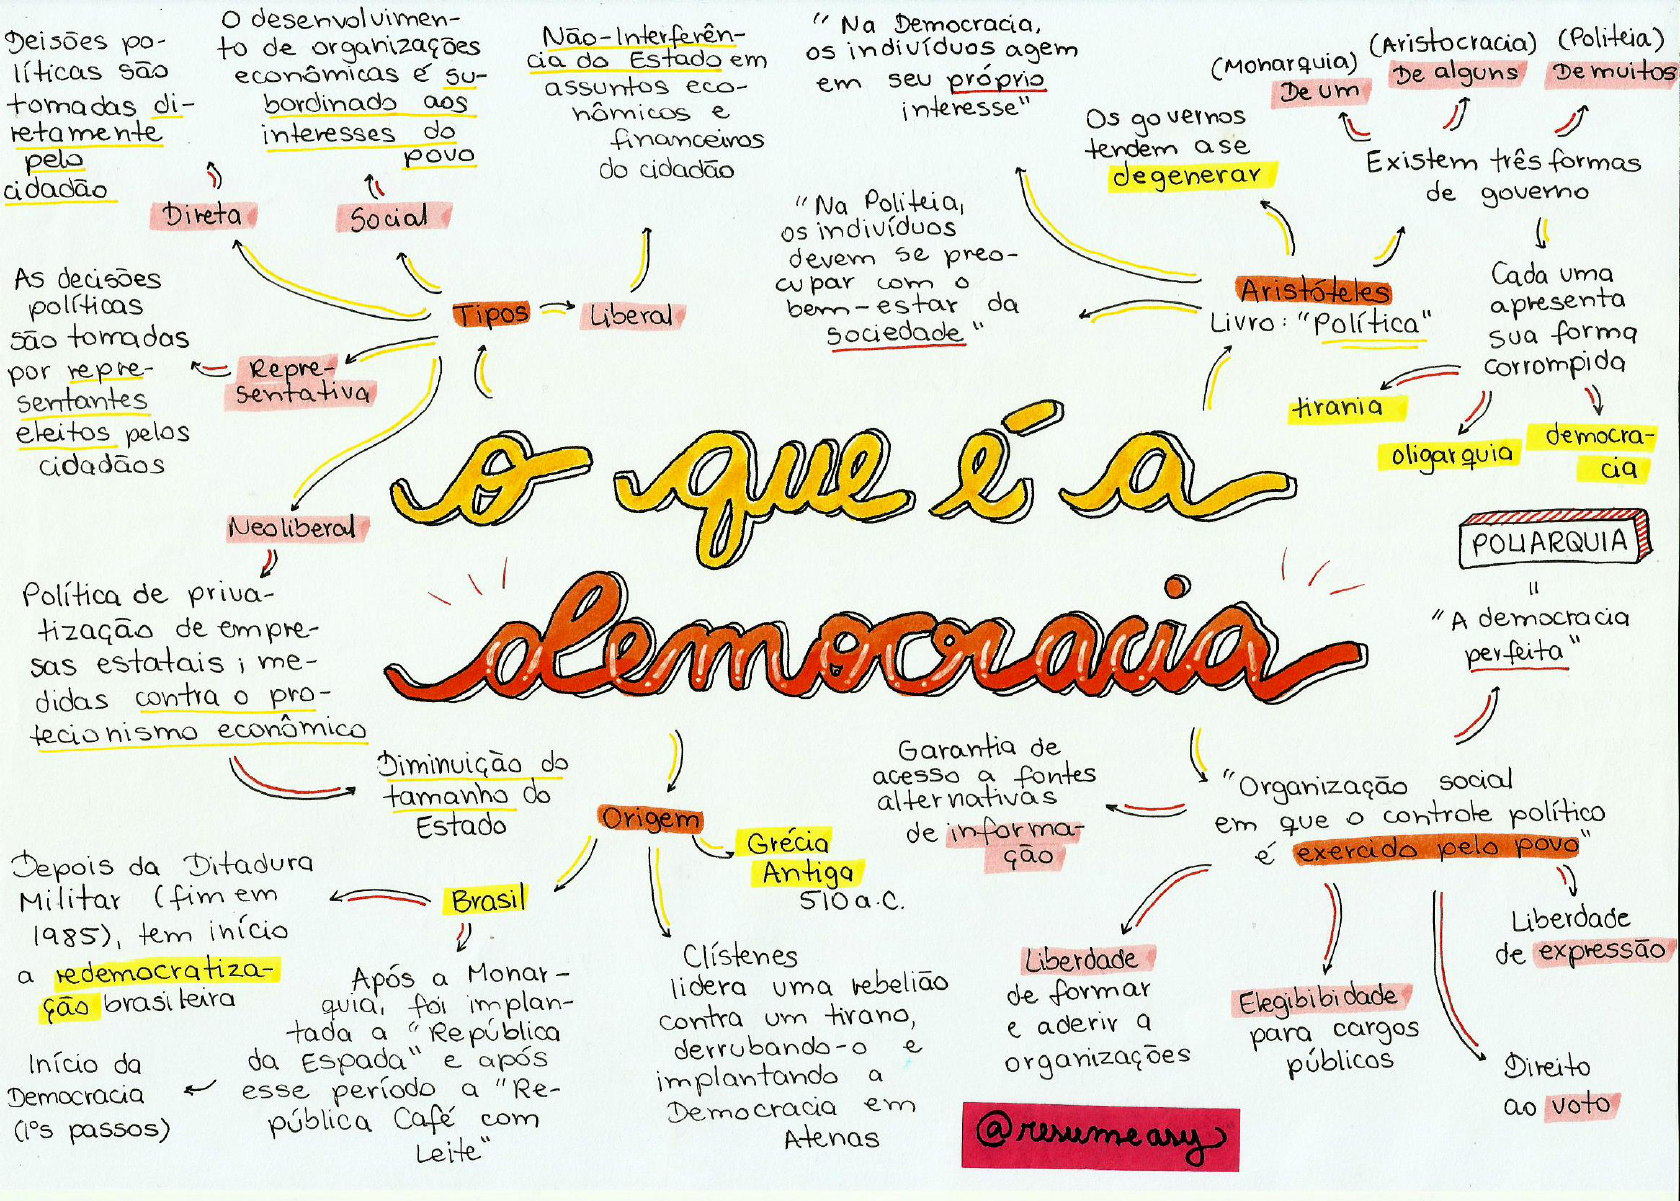 Deisões po-
líticas são
tomadas di-
retamente
pelo
cidadão
Direta
O desenvolvimen-
to de organizações
econômicas é su-
bordinado aos
interesses do
povo
Social
Não-Interferên-
cia do Estado em
assuntos eco-
nômicos e
financeiros
do cidadão
Liberal
Tipos
As decisões
políticas
são tomadas
por repre-
sentantes
eleitos pelos
cidadãos
Repre-
sentativa
Neoliberal
Política de priva-
tização de empre-
sas estatais; me-
didas contra o pro-
tecionismo econômico
Diminuição do
tamanho do
Estado
"Na Democracia,
os indivíduos agem
em seu próprio
interesse"
"Na Politeia,
os indivíduos
devem se preo-
cupar com o
bem-estar da
sociedade"
Os governos
tendem a se
degenerar
Aristóteles
Livro: "Política"
(Monarquia)
De um
(Aristocracia)
De alguns
(Politeia)
De muitos
Existem três formas
de governo
Cada uma
apresenta
sua forma
corrompida
tirania
oligarquia
democra-
cia
o que é a
democracia
POLIARQUIA
=
"A democracia
perfeita"
"Organização social
em que o controle político
é exercido pelo povo"
Garantia de
acesso a fontes
alternativas
de informa-
ção
Liberdade
de formar
e aderir a
organizações
Elegibibidade
para cargos
públicos
Liberdade
de expressão
Direito
ao voto
Origem
Grécia
Antiga
510 a.C.
Clístenes
lidera uma rebelião
contra um tirano,
derrubando-o e
implantando a
Democracia em
Atenas
Brasil
Depois da Ditadura
Militar (fim em
1985), tem início
a redemocratiza-
ção brasileira
Após a Monar-
quia, foi implan-
tada a "República
da Espada" e após
esse período a "Re-
pública Café com
Leite"
Início da
Democracia
(1ºs passos)
@resumeasy